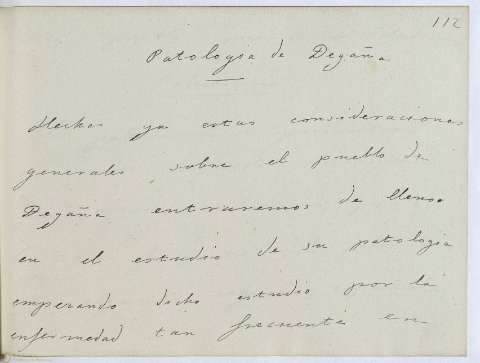 112
Patologia de Degaña
Hechas ya estas consideraciones
generales sobre el pueblo de
Degaña entraremos de lleno
en el estudio de su patologia
emperando dicho estudio por la
enfermedad tan frecuente en